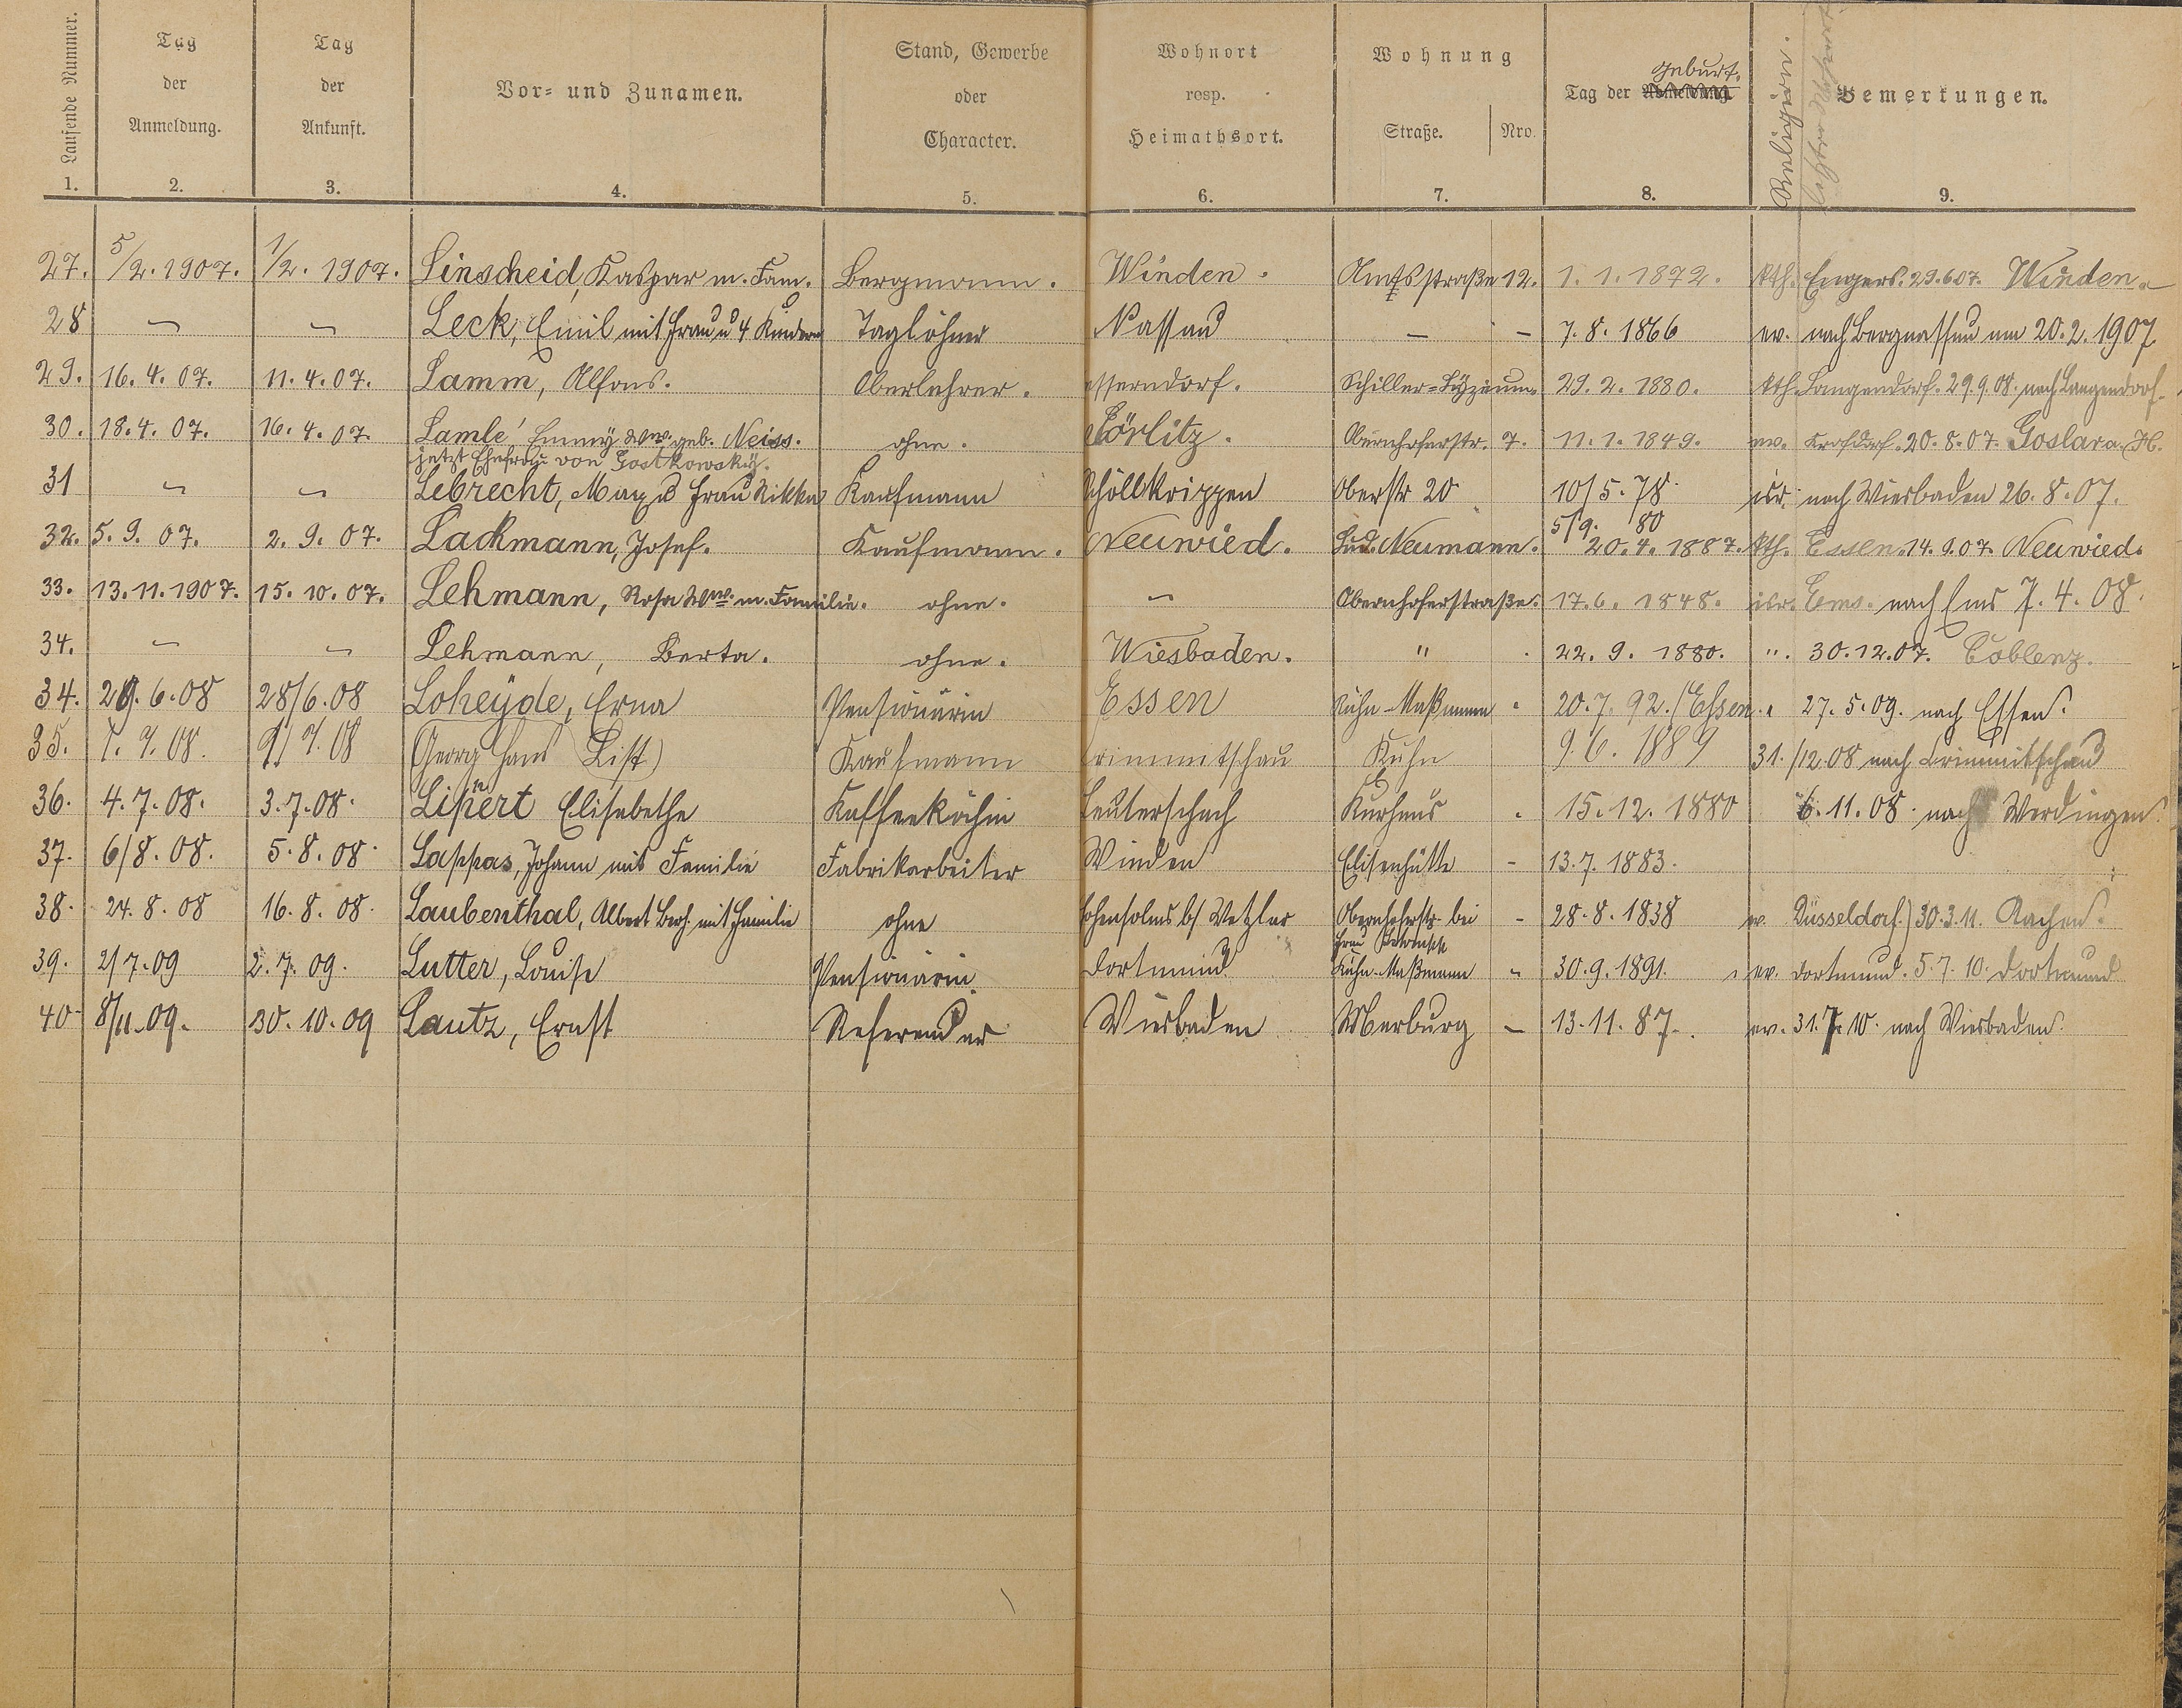 Laufende Nummer. Tag der Anmeldung. Tag der Ankunft. Vor- und Zunamen. Stand, Gewerbe oder Character. Wohnort resp. Heimathsort. Wohnung Straße. Nro. Tag der Geburt. Religion. Bemerkungen.
1. 2. 3. 4. 5. 6. 7. 8. 9.
27. 5/2. 1907. 1/2. 1907. Linscheid, Kaspar m. Fam. Bergmann. Winden. Amtsstraße 12. 1. 1. 1872. kth. Engers. 29.6 07. Winden.
28 Leck, Emil mit Frau u 4 Kindern Taglöhner Nassau — - 7. 8. 1866 ev. nach Bergnassau am 20. 2. 1907.
29. 16. 4. 07. 11. 4. 07. Lamm, Alfons. Oberlehrer. esserndorf. Schiller-Lyzeum. 29. 2. 1880. kth. Langendorf. 29. 9. 08. nach Langendorf.
30. 18. 4. 07. 16. 4. 07. Lamlé Emmy Ww. geb. Neiss. ohne. Görlitz. Obernhoferstr. 7. 11. 1. 1849. ev. 20. 8. 07. Goslar a. H.
jetzt Ehefrau von Gostkowsky.
31 Lebrecht, Max u Frau Rikka Kaufmann Schöllkrippen Oberstr 20 10/5. 78. isr. nach Wiesbaden 26. 8. 07.
5/9. 80
32. 5. 9. 07. 2. 9. 07. Lackmann, Josef. Kaufmann. Neuwied. Lud. Neumann. 20. 4. 1887. kth. Essen. 14. 9. 07. Neuwied.
33. 13. 11. 1907. 15. 10. 07. Lehmann, Rosa Ww. m. Familie. ohne. Obernhoferstraße. 17. 6. 1848. isr. Ems. nach Ems 7. 4. 08.
34. Lehmann, Berta. ohne. Wiesbaden. " 22. 9. 1880. ". 30. 12. 07. Coblenz.
34. 29. 6. 08 28/6. 08 Loheyde, Erna Pensionärin Essen Kuhn-Maßmann 20. 7. 92. (Essen. 27. 5. 09. nach Essen.
35. 1. 7. 08. 1/7. 08 Georg Hans List) Kaufmann Crimmitschau Kuhn 9. 6. 1889 31./12 08 nach Crimmitschau
36. 4. 7. 08. 3. 7. 08. Lipert Elisabethe Kaffeeköchin Leuterschach Kurhaus 15. 12. 1880 6. 11. 08. nach Werdingen.
37. 6/8. 08. 5. 8. 08. Lappas, Johann mit Familie Fabrikarbeiter Winden Elisenhütte - 13. 7. 1883.
38. 24. 8. 08 16. 8. 08. Laubenthal, Albert Berh. mit Familie ohne Hohensolms b/ Wetzlar Obernhoferstr. bei - 28. 8. 1838 ev. Düsseldorf.) 30. 3. 11. Aachen.
Frau
39. 2/7. 09 2. 7. 09. Lutter, Louise Pensionärin. Dortmund Kuhn-Maßmann 30. 9. 1891. ev. Dortmund. 5. 7. 10. Dortmund
40 8/11. 09. 30. 10. 09 Lautz, Ernst Referendar Wiesbaden Marburg - 13. 11. 87. ev. 31. 7. 10. nach Wiesbaden.